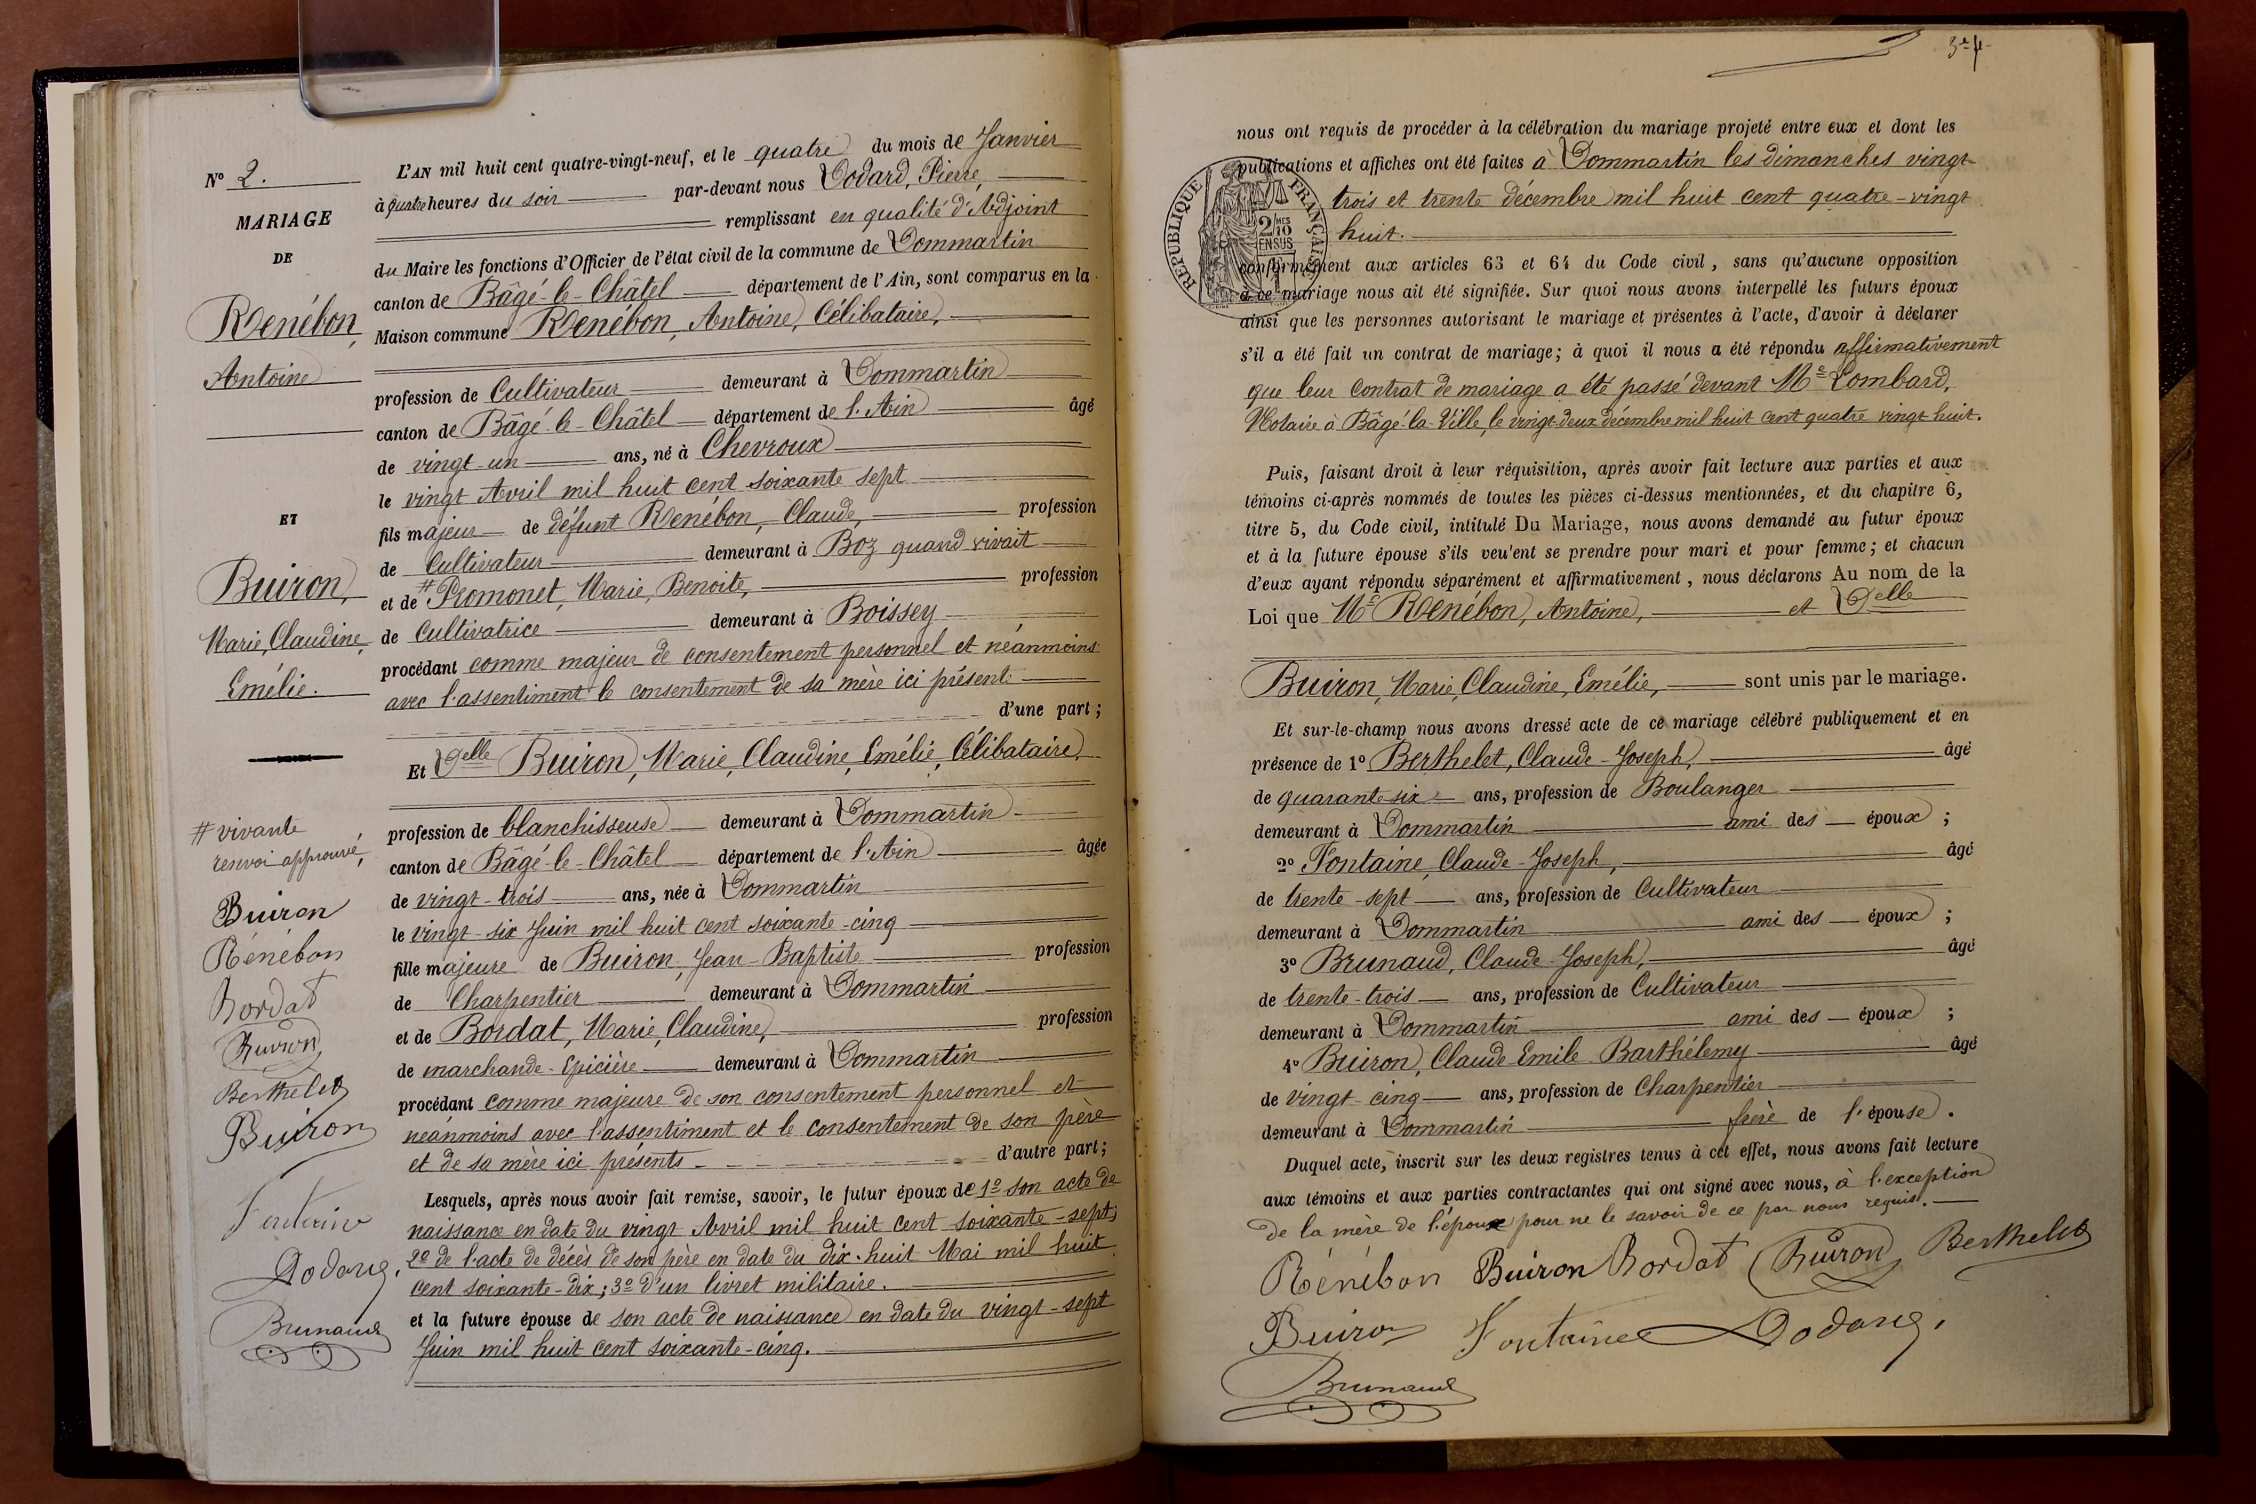 N° 2.
MARIAGE
DE
Renébon,
Antoine
ET
Buiron,
Marie, Claudine,
Emélie.
# vivante
renvoi approuvé,
Buiron
Rénébon
Bordat
Buiron
Berthelet
Buiron
Fontaine
Dodard,
Brunaud
L'AN mil huit cent quatre-vingt-neuf, et le quatre du mois de Janvier
à quatre heures du soir par-devant nous Dodard, Pierre,
remplissant en qualité d'Adjoint
du Maire les fonctions d'Officier de l'état civil de la commune de Dommartin
canton de Bâgé-le-Châtel département de l'Ain, sont comparus en la
Maison commune Renébon, Antoine, Célibataire,
profession de Cultivateur demeurant à Dommartin
canton de Bâgé-le-Châtel département de l'Ain âgé
de vingt-un ans, né à Chevroux
le vingt Avril mil huit cent soixante sept
fils majeur de défunt Renébon, Claude, profession
de Cultivateur demeurant à Boz quand vivait
et de # Promonet, Marie, Benoite, profession
de Cultivatrice demeurant à Boissey
procédant comme majeur de consentement personnel et néanmoins
avec l'assentiment le consentement de sa mère ici présente
d'une part;
Et Delle Buiron, Marie, Claudine, Emélie, Célibataire,
profession de blanchisseuse demeurant à Dommartin
canton de Bâgé-le-Châtel département de l'Ain âgée
de vingt-trois ans, née à Dommartin
le vingt-six Juin mil huit cent soixante-cinq
fille majeure de Buiron, Jean-Baptiste profession
de Charpentier demeurant à Dommartin
et de Bordat, Marie, Claudine, profession
de marchande-Epicière demeurant à Dommartin
procédant comme majeure de son consentement personnel et
néanmoins avec l'assentiment et le consentement de son père
et de sa mère ici présents d'autre part;
Lesquels, après nous avoir fait remise, savoir, le futur époux de 1° son acte de
naissance en date du vingt Avril mil huit cent soixante-sept;
2° de l'acte de décès de son père en date du dix-huit Mai mil huit
cent soixante-dix; 3° d'un livret militaire.
et la future épouse de son acte de naissance en date du vingt-sept
Juin mil huit cent soixante-cinq.
nous ont requis de procéder à la célébration du mariage projeté entre eux et dont les
publications et affiches ont été faites à Dommartin les dimanches vingt-
trois et trente décembre mil huit cent quatre-vingt
huit.
RÉPUBLIQUE FRANÇAISE
2/10 EN SUS
conformément aux articles 63 et 64 du Code civil, sans qu'aucune opposition
à ce mariage nous ait été signifiée. Sur quoi nous avons interpellé les futurs époux
ainsi que les personnes autorisant le mariage et présentes à l'acte, d'avoir à déclarer
s'il a été fait un contrat de mariage; à quoi il nous a été répondu affirmativement
que leur contrat de mariage a été passé devant Me Lombard,
Notaire à Bâgé-la-Ville, le vingt-deux décembre mil huit cent quatre vingt huit.
Puis, faisant droit à leur réquisition, après avoir fait lecture aux parties et aux
témoins ci-après nommés de toutes les pièces ci-dessus mentionnées, et du chapitre 6,
titre 5, du Code civil, intitulé Du Mariage, nous avons demandé au futur époux
et à la future épouse s'ils veu'ent se prendre pour mari et pour femme; et chacun
d'eux ayant répondu séparément et affirmativement, nous déclarons Au nom de la
Loi que Mr Renébon, Antoine, et Delle
Buiron, Marie, Claudine, Emélie, sont unis par le mariage.
Et sur-le-champ nous avons dressé acte de ce mariage célébré publiquement et en
présence de 1° Berthelet, Claude-Joseph, âgé
de quarante-six ans, profession de Boulanger
demeurant à Dommartin ami des époux;
2° Fontaine, Claude-Joseph, âgé
de trente-sept ans, profession de Cultivateur
demeurant à Dommartin ami des époux;
3° Brunaud, Claude-Joseph, âgé
de trente-trois ans, profession de Cultivateur
demeurant à Dommartin ami des époux;
4° Buiron, Claude Emile Barthélemy âgé
de vingt-cinq ans, profession de Charpentier
demeurant à Dommartin frère de l'épouse.
Duquel acte, inscrit sur les deux registres tenus à cet effet, nous avons fait lecture
aux témoins et aux parties contractantes qui ont signé avec nous, à l'exception
de la mère de l'époux pour ne le savoir de ce par nous requis.
Rénébon Buiron Bordat Buiron Berthelet
Buiron Fontaine Dodard,
Brunaud